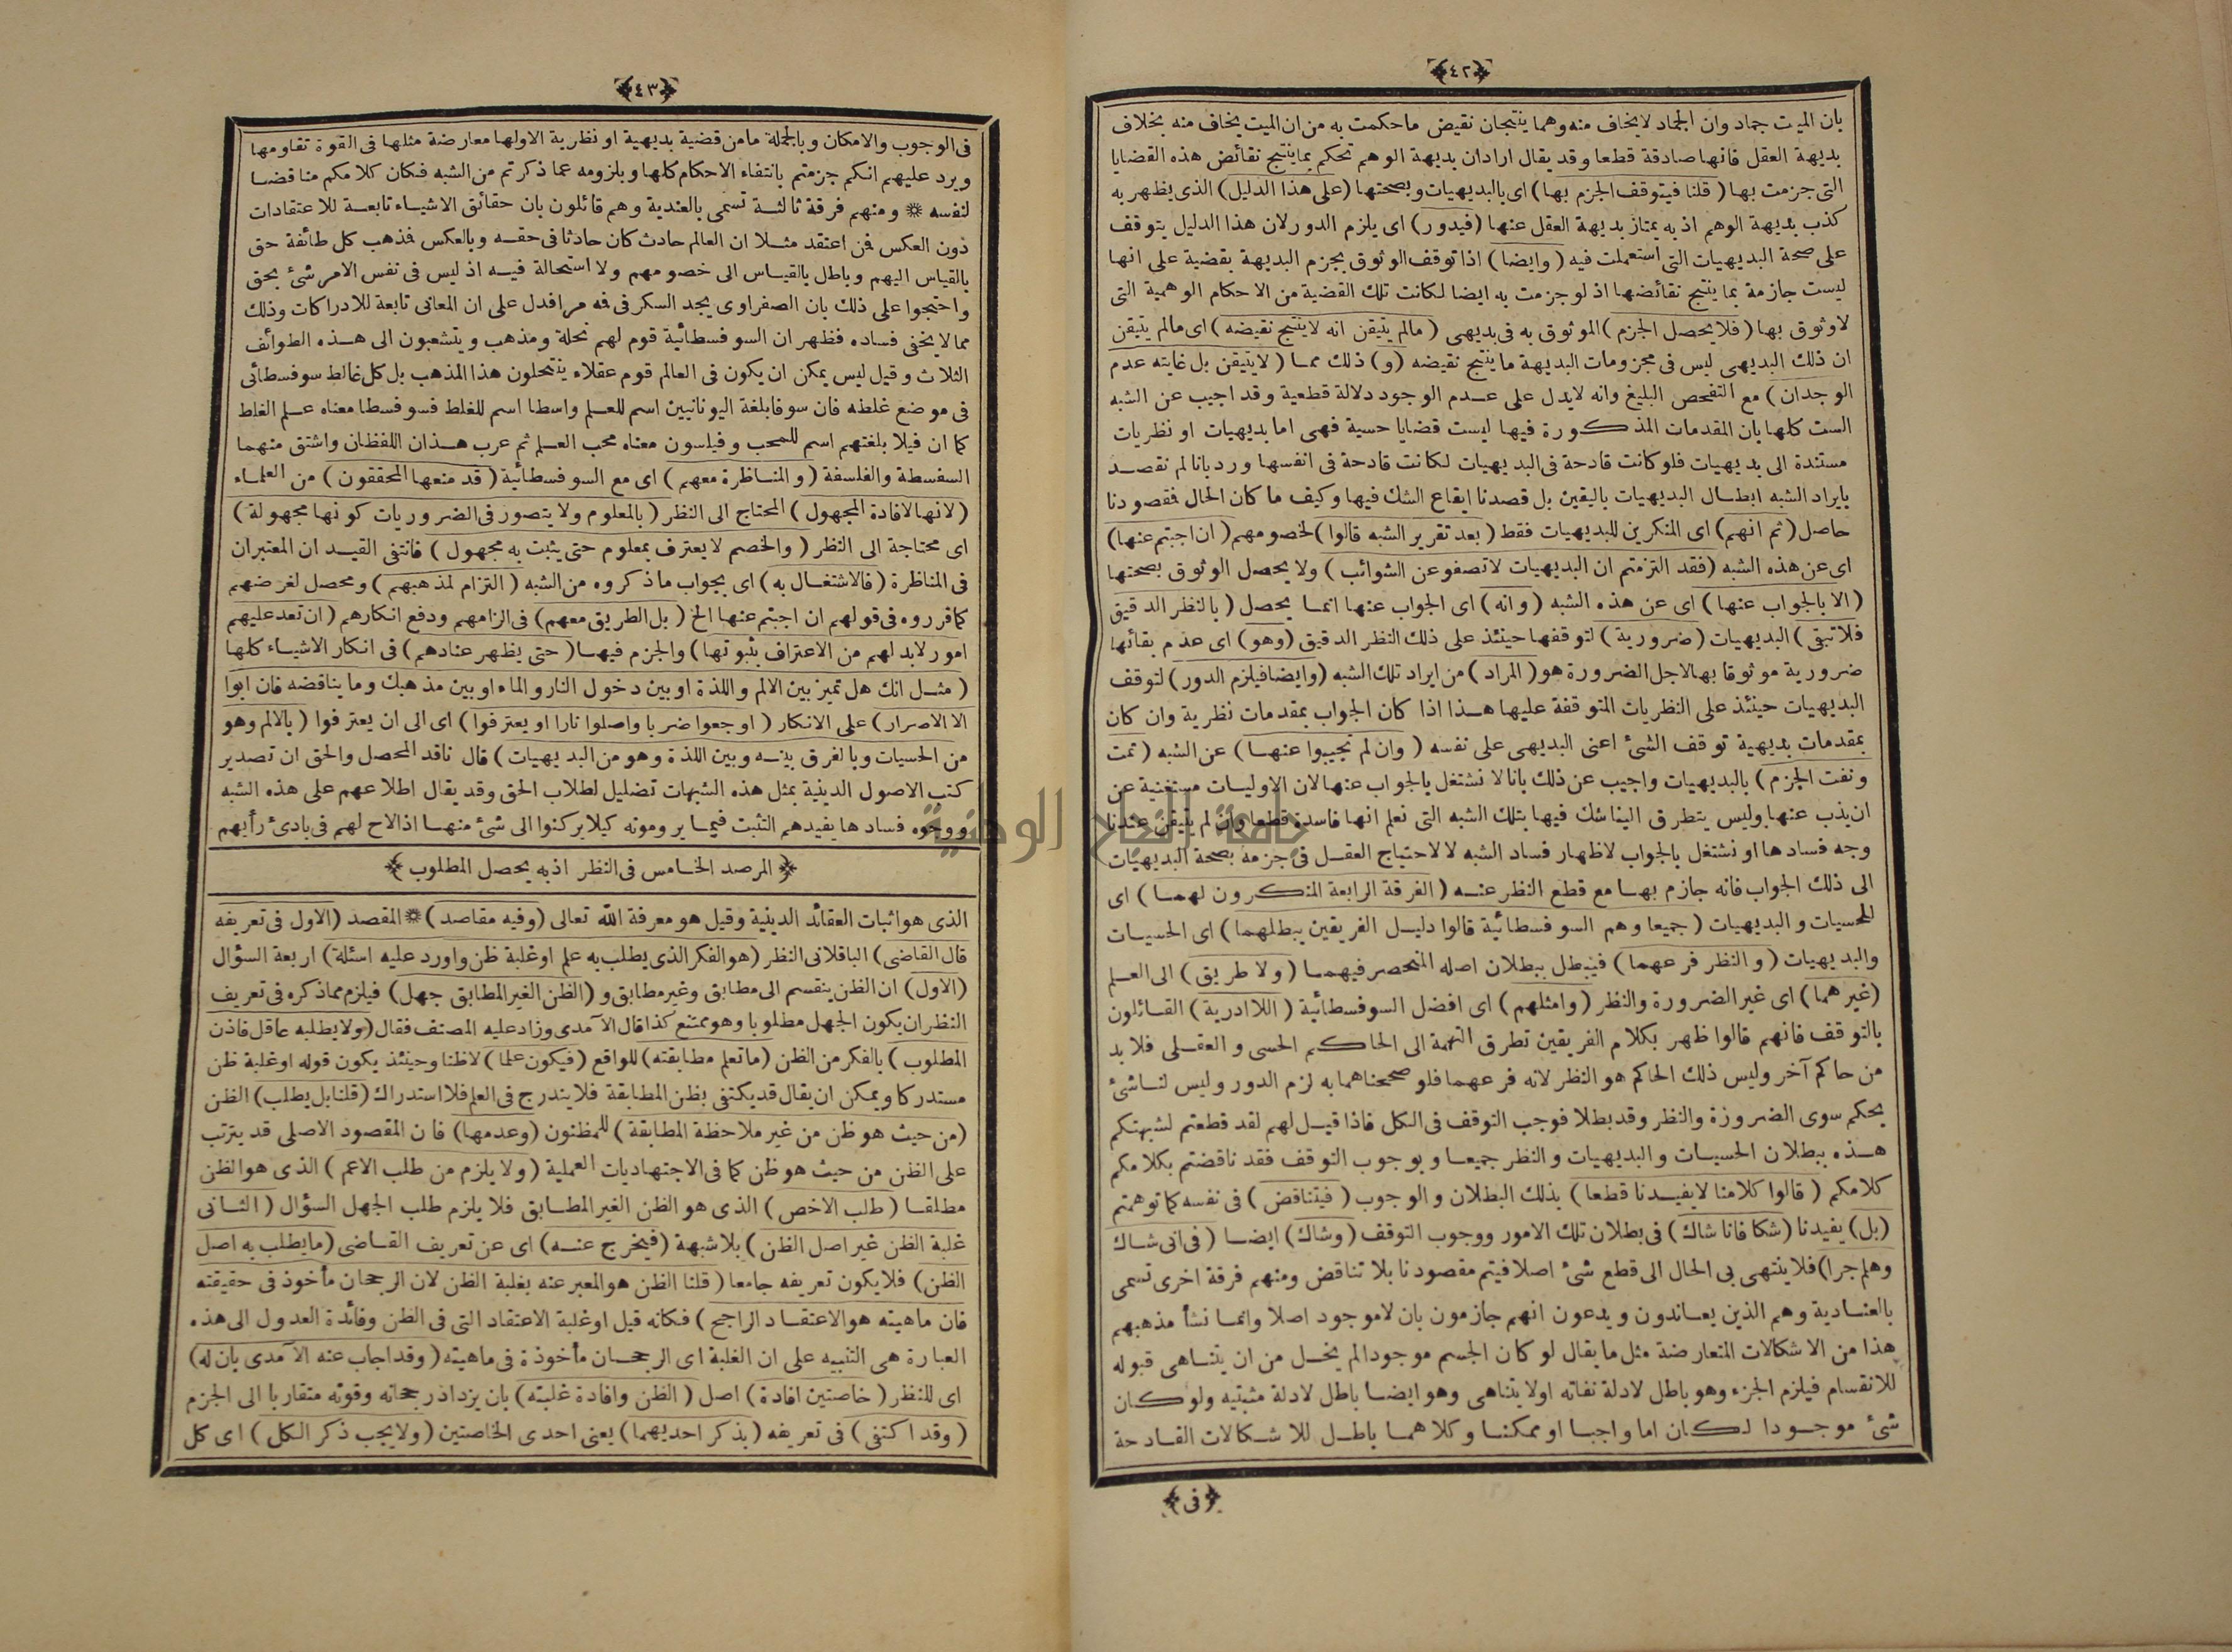 ﴿٤٢﴾
بان الميت جماد وان الجماد لا يخاف منه وهما ينتجان نقيض ما حكمت به من ان الميت يخاف منه بخلاف
بديهة العقل فانها صادقة قطعا وقد يقال اراد ان بديهة الوهم تحكم بما ينتج نقائض هذه القضايا
التى جزمت بها (قلنا فيتوقف الجزم بها) اى بالبديهيات وبصحتها (على هذا الدليل) الذى يظهر به
كذب بديهة الوهم اذ به يمتاز بديهة العقل عنها (فيدور) اى يلزم الدور لان هذا الدليل يتوقف
على صحة البديهيات التى استعملت فيه (وايضا) اذا توقف الوثوق بجزم البديهة بقضية على انها
ليست جازمة بما ينتج نقائضها اذ لو جزمت به ايضا لكانت تلك القضية من الاحكام الوهمية التى
لا وثوق بها (فلا يحصل الجزم) الموثوق به فى بديهى (ما لم يتيقن انه لا ينتج نقيضه) اى ما لم يتيقن
ان ذلك البديهى ليس فى مجزومات البديهة ما ينتج نقيضه (و) ذلك مما (لا يتيقن بل غايته عدم
الوجدان) مع التفحص البليغ وانه لا يدل على عدم الوجود دلالة قطعية وقد اجيب عن الشبه
الست كلها بان المقدمات المذكورة فيها ليست قضايا حسية فهى اما بديهيات او نظريات
مستندة الى بديهيات فلو كانت قادحة فى البديهيات لكانت قادحة فى انفسها ورد بانا لم نقصد
بايراد الشبه ابطال البديهيات باليقين بل قصدنا ايقاع الشك فيها وكيف ما كان الحال فقصودنا
حاصل (ثم انهم) اى المنكرين للبديهيات فقط (بعد تقرير الشبه قالوا) لخصومهم (ان اجبتم عنها)
اى عن هذه الشبه (فقد التزمتم ان البديهيات لا تصفو عن الشوائب) ولا يحصل الوثوق بصحتها
(الا بالجواب عنها) اى عن هذه الشبه (وانه) اى الجواب عنها انما يحصل (بالنظر الدقيق
فلا تبقى) البديهيات (ضرورية) لتوقفها حينئذ على ذلك النظر الدقيق (وهو) اى عدم بقائها
ضرورية موثوقا بها لاجل الضرورة هو (المراد) من ايراد تلك الشبه (وايضا فيلزم الدور) لتوقف
البديهيات حينئذ على النظريات المتوقفة عليها هذا اذا كان الجواب بمقدمات نظرية وان كان
بمقدمات بديهية توقف الشئ اعنى البديهى على نفسه (وان لم تجيبوا عنها) عن الشبه (تمت
ونفت الجزم) بالبديهيات واجيب عن ذلك بانا لا نشتغل بالجواب عنها لان الاوليات مستغنية عن
ان يذب عنها وليس يتطرق الينا شك فيها بتلك الشبه التى نعلم انها فاسدة قطعا وان لم يتيقن عندنا
وجه فسادها او نشتغل بالجواب لاظهار فساد الشبه لا لاحتياج العقل فى جزمه بصحة البديهيات
الى ذلك الجواب فانه جازم بها مع قطع النظر عنه (الفرقة الرابعة المنكرون لهما) اى
للحسيات والبديهيات (جميعا وهم السوفسطائية قالوا دليل الفريقين يبطلهما) اى الحسيات
والبديهيات (والنظر فرعهما) فيبطل ببطلان اصله المنحصر فيهما (ولا طريق) الى العلم
(غيرهما) اى غير الضرورة والنظر (وامثلهم) اى افضل السوفسطائية (اللاادرية) القائلون
بالتوقف فانهم قالوا ظهر بكلام الفريقين تطرق التهمة الى الحاكم الحسى والعقلى فلا بد
من حاكم آخر وليس ذلك الحاكم هو النظر لانه فرعهما فلو صححناهما به لزم الدور وليس لنا شئ
يحكم سوى الضرورة والنظر وقد بطلا فوجب التوقف فى الكل فاذا قيل لهم لقد قطعتم لشبهتكم
هذه ببطلان الحسيات والبديهيات والنظر جميعا وبوجوب التوقف فقد ناقضتم بكلامكم
كلامكم (قالوا كلامنا لا يفيدنا قطعا) بذلك البطلان والوجوب (فيتناقض) فى نفسه كما توهمتم
(بل) يفيدنا (شكا فانا شاك) فى بطلان تلك الامور ووجوب التوقف (وشاك) ايضا (فى انى شاك
وهلم جرا) فلا ينتهى بى الحال الى قطع شئ اصلا فيتم مقصودنا بلا تناقض ومنهم فرقة اخرى تسمى
بالعنادية وهم الذين يعاندون ويدعون انهم جازمون بان لا موجود اصلا وانما نشأ مذهبهم
هذا من الاشكالات المتعارضة مثل ما يقال لو كان الجسم موجودا لم يخل من ان يتناهى قبوله
للانقسام فيلزم الجزء وهو باطل لادلة نفاته اولا يتناهى وهو ايضا باطل لادلة مثبتيه ولو كان
شئ موجودا لكان اما واجبا او ممكنا وكلاهما باطل للاشكالات القادحة
﴿فى﴾
﴿٤٣﴾
فى الوجوب والامكان وبالجملة ما من قضية بديهية او نظرية الا ولها معارضة مثلها فى القوة تقاومها
ويرد عليهم انكم جزمتم بانتفاء الاحكام كلها وبلزومه عما ذكرتم من الشبه فكان كلامكم مناقضا
لنفسه * ومنهم فرقة ثالثة تسمى بالعندية وهم قائلون بان حقائق الاشياء تابعة للاعتقادات
دون العكس فمن اعتقد مثلا ان العالم حادث كان حادثا فى حقه وبالعكس فذهب كل طائفة حق
بالقياس اليهم وباطل بالقياس الى خصومهم ولا استحالة فيه اذ ليس فى نفس الامر شئ بحق
واحتجوا على ذلك بان الصفراوى يجد السكر فى فه مرا فدل على ان المعانى تابعة للادراكات وذلك
مما لا يخفى فساده فظهر ان السوفسطائية قوم لهم نحلة ومذهب ويتشعبون الى هذه الطوائف
الثلاث وقيل ليس يمكن ان يكون فى العالم قوم عقلاء ينتحلون هذا المذهب بل كل غالط سوفسطائى
فى موضع غلطه فان سوفا بلغة اليونانيين اسم للعلم واسطا اسم للغلط فسوفسطا معناه علم الغلط
كما ان فيلا بلغتهم اسم للمحب وفيلسون معناه محب العلم ثم عرب هذان اللفظان واشتق منهما
السفسطة والفلسفة (والمناظرة معهم) اى مع السوفسطائية (قد منعها المحققون) من العلماء
(لانها لافادة المجهول) المحتاج الى النظر (بالمعلوم ولا يتصور فى الضروريات كونها مجهولة)
اى محتاجة الى النظر (والخصم لا يعترف بمعلوم حتى يثبت به مجهول) فانتفى القيد ان المعتبران
فى المناظرة (فالاشتغال به) اى بجواب ما ذكروه من الشبه (التزام لمذهبهم) ومحصل لغرضهم
كما قرروه فى قولهم ان اجبتم عنها الخ (بل الطريق معهم) فى الزامهم ودفع انكارهم (ان تعد عليهم
امور لابد لهم من الاعتراف بثبوتها) والجزم فيها (حتى يظهر عنادهم) فى انكار الاشياء كلها
(مثل انك هل تميز بين الالم واللذة او بين دخول النار والماء او بين مذهبك وما يناقضه فان ابوا
الا الاصرار) على الانكار (اوجعوا ضربا واصلوا نارا او يعترفوا) اى الى ان يعترفوا (بالالم وهو
من الحسيات وبالفرق بينه وبين اللذة وهو من البديهيات) قال ناقد المحصل والحق ان تصدير
كتب الاصول الدينية بمثل هذه الشبهات تضليل لطلاب الحق وقد يقال اطلاعهم على هذه الشبه
ووجوه فسادها يفيدهم التثبت فيما يرومونه كيلا يركنوا الى شئ منها اذا لاح لهم فى بادئ رأيهم
﴿المرصد الخامس فى النظر اذ به يحصل المطلوب﴾
الذى هو اثبات العقائد الدينية وقيل هو معرفة الله تعالى (وفيه مقاصد) * المقصد (الاول فى تعريفه
قال القاضى) الباقلانى النظر (هو الفكر الذى يطلب به علم او غلبة ظن واورد عليه اسئلة) اربعة السؤال
(الاول) ان الظن ينقسم الى مطابق وغير مطابق و (الظن الغير المطابق جهل) فيلزم مما ذكره فى تعريف
النظر ان يكون الجهل مطلوبا وهو ممتنع كذا قال الآمدى وزاد عليه المصنف فقال (ولا يطلبه عاقل فاذن
المطلوب) بالفكر من الظن (ما تعلم مطابقته) للواقع (فيكون علما) لا ظنا وحينئذ يكون قوله او غلبة ظن
مستدركا ويمكن ان يقال قد يكتفى بظن المطابقة فلا يندرج فى العلم فلا استدراك (قلنا بل يطلب) الظن
(من حيث هو ظن من غير ملاحظة المطابقة) للمظنون (وعدمها) فان المقصود الاصلى قد يترتب
على الظن من حيث هو ظن كما فى الاجتهاديات العملية (ولا يلزم من طلب الاعم) الذى هو الظن
مطلقا (طلب الاخص) الذى هو الظن الغير المطابق فلا يلزم طلب الجهل السؤال (الثانى
غلبة الظن غير اصل الظن) بلا شبهة (فيخرج عنه) اى عن تعريف القاضى (ما يطلب به اصل
الظن) فلا يكون تعريفه جامعا (قلنا الظن هو المعبر عنه بغلبة الظن لان الرجحان مأخوذ فى حقيقته
فان ماهيته هو الاعتقاد الراجح) فكانه قيل او غلبة الاعتقاد التى فى الظن وفائدة العدول الى هذه
العبارة هى التنبيه على ان الغلبة اى الرجحان مأخوذة فى ماهيته (وقد اجاب عنه الآمدى بان له)
اى للنظر (خاصتين افادة) اصل (الظن وافادة غلبته) بان يزداد رجحانه وقوته متقاربا الى الجزم
(وقد اكتفى) فى تعريفه (بذكر احديهما) يعنى احدى الخاصتين (ولا يجب ذكر الكل) اى كل
جامعة النجاح الوطنية